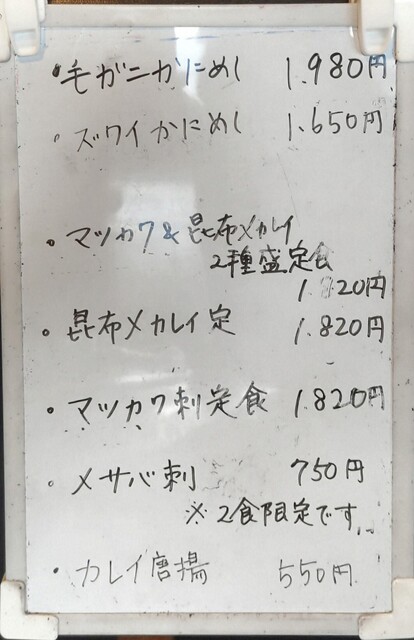 ・毛がニかにめし 1.980円
・ズワイかにめし 1.650円
・マツカワ&昆布〆カレイ
2種盛定食
1.820円
・昆布〆カレイ定 1.820円
・マツカワ刺定食 1.820円
・〆サバ刺 750円
※2食限定です
・カレイ唐揚 550円